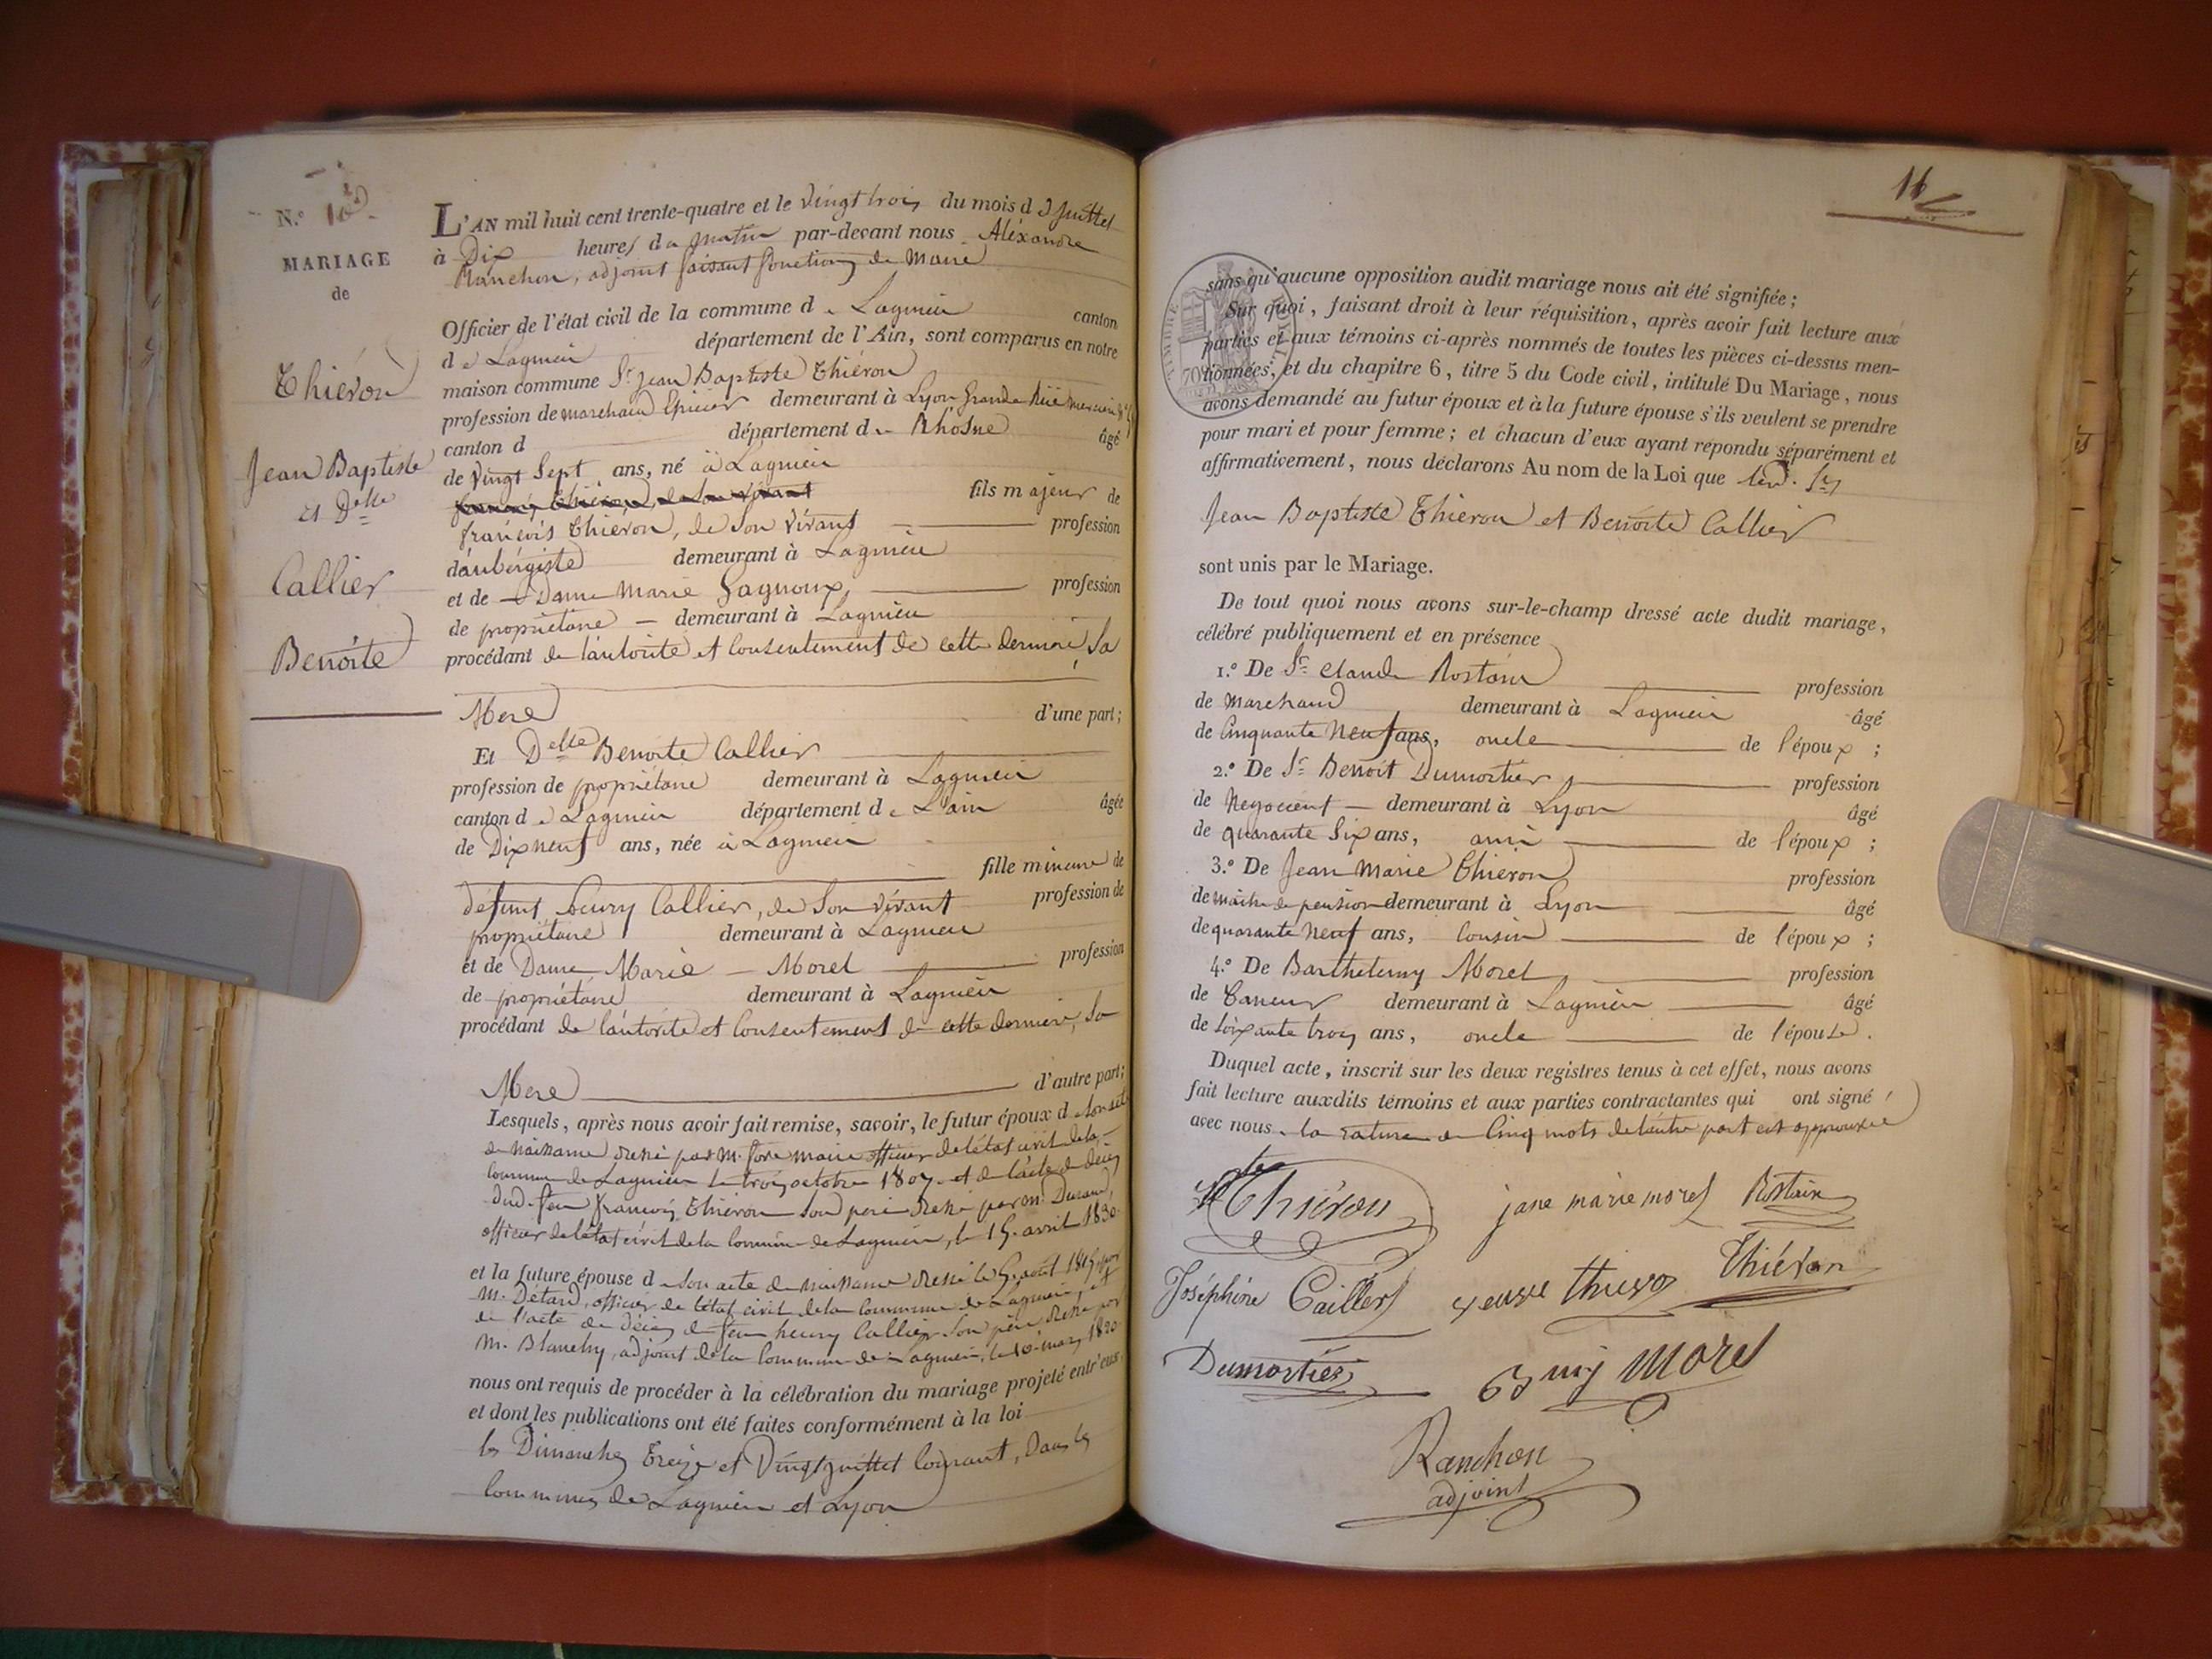 N.º 10
MARIAGE
de
Thiéron
Jean Baptiste
Et Delle
Callier
Benoite
L'AN mil huit cent trente-quatre et le vingt trois du mois d Juillet
à Dix heures du matin par-devant nous Aléxandre
Ranchon, adjoint faisant fonctions de Maire
Officier de l'état civil de la commune de Lagnieu canton
de Lagnieu département de l'Ain, sont comparus en notre
maison commune Sr Jean Baptiste Thiéron
profession de marchand Epicier demeurant à Lyon Grande Rüe merciere
canton d département du Rhosne âgé
de vingt Sept ans, né à Lagnieu
fils majeur de
françois Thieron, de Son vivant profession
d'aubergiste demeurant à Lagnieu
et de Dame Marie Gagnoux, profession
de propriétaire demeurant à Lagnieu
procédant de l'autorité et Consentement de cette derniere, Sa
Mere d'une part;
Et Delle Benoite Callier
profession de propriétaire demeurant à Lagnieu
canton de Lagnieu département de L'ain âgée
de Dix neuf ans, née à Lagnieu
fille mineure de
défunt henry Callier, de Son vivant profession de
propriétaire demeurant à Lagnieu
et de Dame Marie Morel profession
de propriétaire demeurant à Lagnieu
procédant de l'autorité et Consentement de cette derniere, Sa
Mere d'autre part;
Lesquels, après nous avoir fait remise, savoir, le futur époux de Son acte
de naissance dressé par M. maire officier de l'état civil de la
commune de Lagnieu le trois octobre 1807 et de l'acte de décès
dud. feu françois Thiéron Son pere dressé par M. Durand,
officier de l'état civil de la Commune de Lagnieu, le 15 avril 1830
et la future épouse de Son acte de naissance dressé le 5 août 1815 par
M. Détard, officier de l'état civil de la Commune de Lagnieu, et
de l'acte de décès de feu henry Callier Son père dressé par
M. Blanchy, adjoint de la Commune de Lagnieu, le 10 mars 1820
nous ont requis de procéder à la célébration du mariage projeté entr'eux
et dont les publications ont été faites conformément à la loi
les Dimanches Treize et Vingt juillet Courant, Dans les
Communes de Lagnieu et Lyon
16
TIMBRE
sans qu'aucune opposition audit mariage nous ait été signifiée;
Sur quoi, faisant droit à leur réquisition, après avoir fait lecture aux
parties et aux témoins ci-après nommés de toutes les pièces ci-dessus men-
tionnées, et du chapitre 6, titre 5 du Code civil, intitulé Du Mariage, nous
avons demandé au futur époux et à la future épouse s'ils veulent se prendre
pour mari et pour femme; et chacun d'eux ayant répondu séparément et
affirmativement, nous déclarons Au nom de la Loi que led. Sr
Jean Baptiste Thieron et Benoite Callier
sont unis par le Mariage.
De tout quoi nous avons sur-le-champ dressé acte dudit mariage,
célébré publiquement et en présence
1.º De Sr Claude Rostain profession
de Marchand demeurant à Lagnieu âgé
de Cinquante Neuf ans, oncle de l'époux;
2.º De Sr Benoit Dumortier, profession
de Negociant demeurant à Lyon âgé
de quarante Six ans, ami de l'époux;
3.º De Jean Marie Thiéron profession
de maitre de pension demeurant à Lyon âgé
de quarante Neuf ans, Cousin de l'époux;
4.º De Barthelemy Morel, profession
de Taneur demeurant à Lagnieu âgé
de Soixante trois ans, oncle de l'épouse.
Duquel acte, inscrit sur les deux registres tenus à cet effet, nous avons
fait lecture auxdits témoins et aux parties contractantes qui ont signé
avec nous. la rature de Cinq mots de l'autre part est approuvée
Thiéron jane marie morel Rostain
Joséphine Caillier veuve thiero Thiéron
Dumortier Morel
Ranchon
adjoint